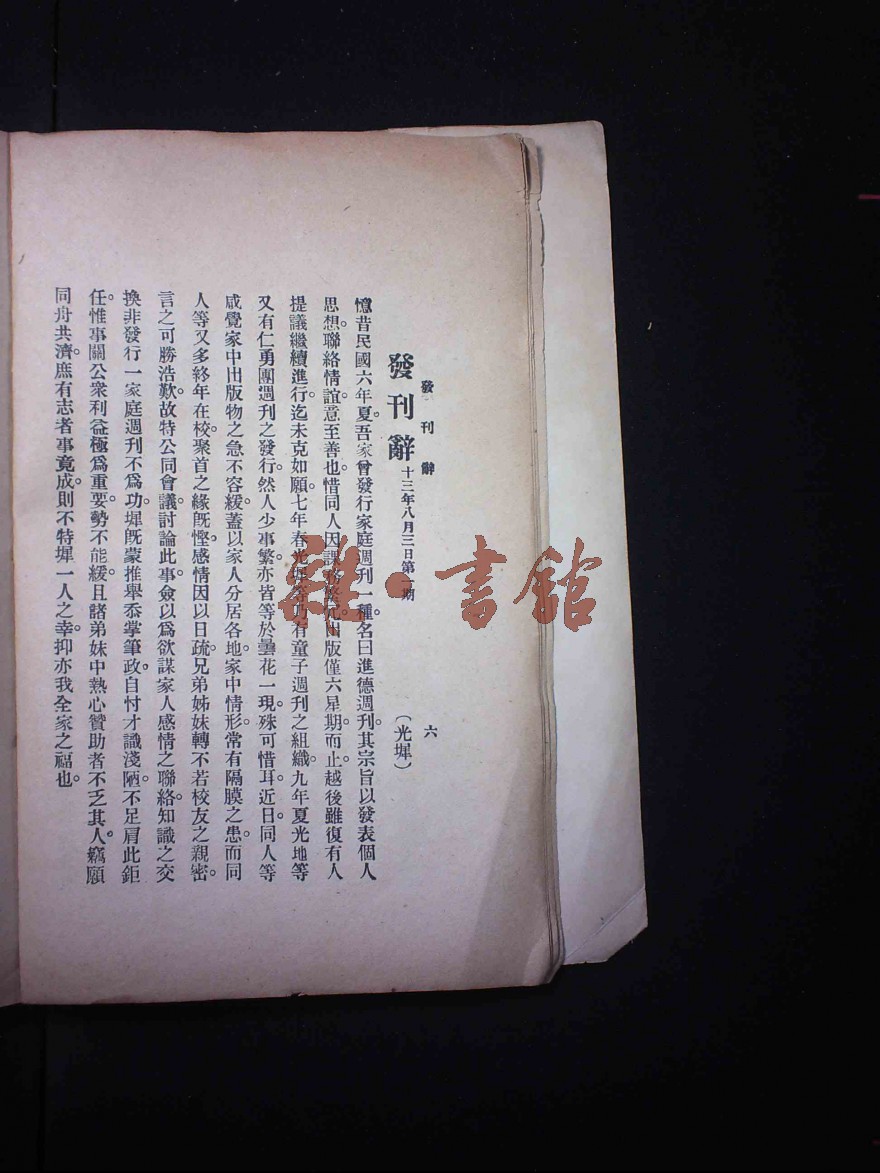 發刊辭
六
發刊辭 十三年八月三日第一期 (光墀)
憶昔民國六年夏。吾家曾發行家庭週刊一種。名曰進德週刊。其宗旨以發表個人
思想。聯絡情誼。意至善也。惜同人因課務繁冗。出版僅六星期。而止。越後雖復有人
提議繼續進行。迄未克如願。七年春光墀等乃有童子週刊之組織。九年夏光地等
又有仁勇團週刊之發行。然人少事繁。亦皆等於曇花一現。殊可惜耳。近日。同人等
咸覺家中出版物之急不容緩。蓋以家人分居各地。家中情形。常有隔膜之患。而同
人等又多終年在校。聚首之緣旣慳。感情因以日疏。兄弟姊妹轉不若校友之親密。
言之可勝浩歎。故特公同會議。討論此事。僉以爲欲謀家人感情之聯絡。知識之交
換。非發行一家庭週刊不爲功。墀旣蒙推舉。忝掌筆政。自忖才識淺陋。不足肩此鉅
任。惟事關公衆利益。極爲重要。勢不能緩。且諸弟妹中熱心贊助者不乏其人。竊願
同舟共濟。庶有志者事竟成。則不特墀一人之幸。抑亦我全家之福也。
雜·書館